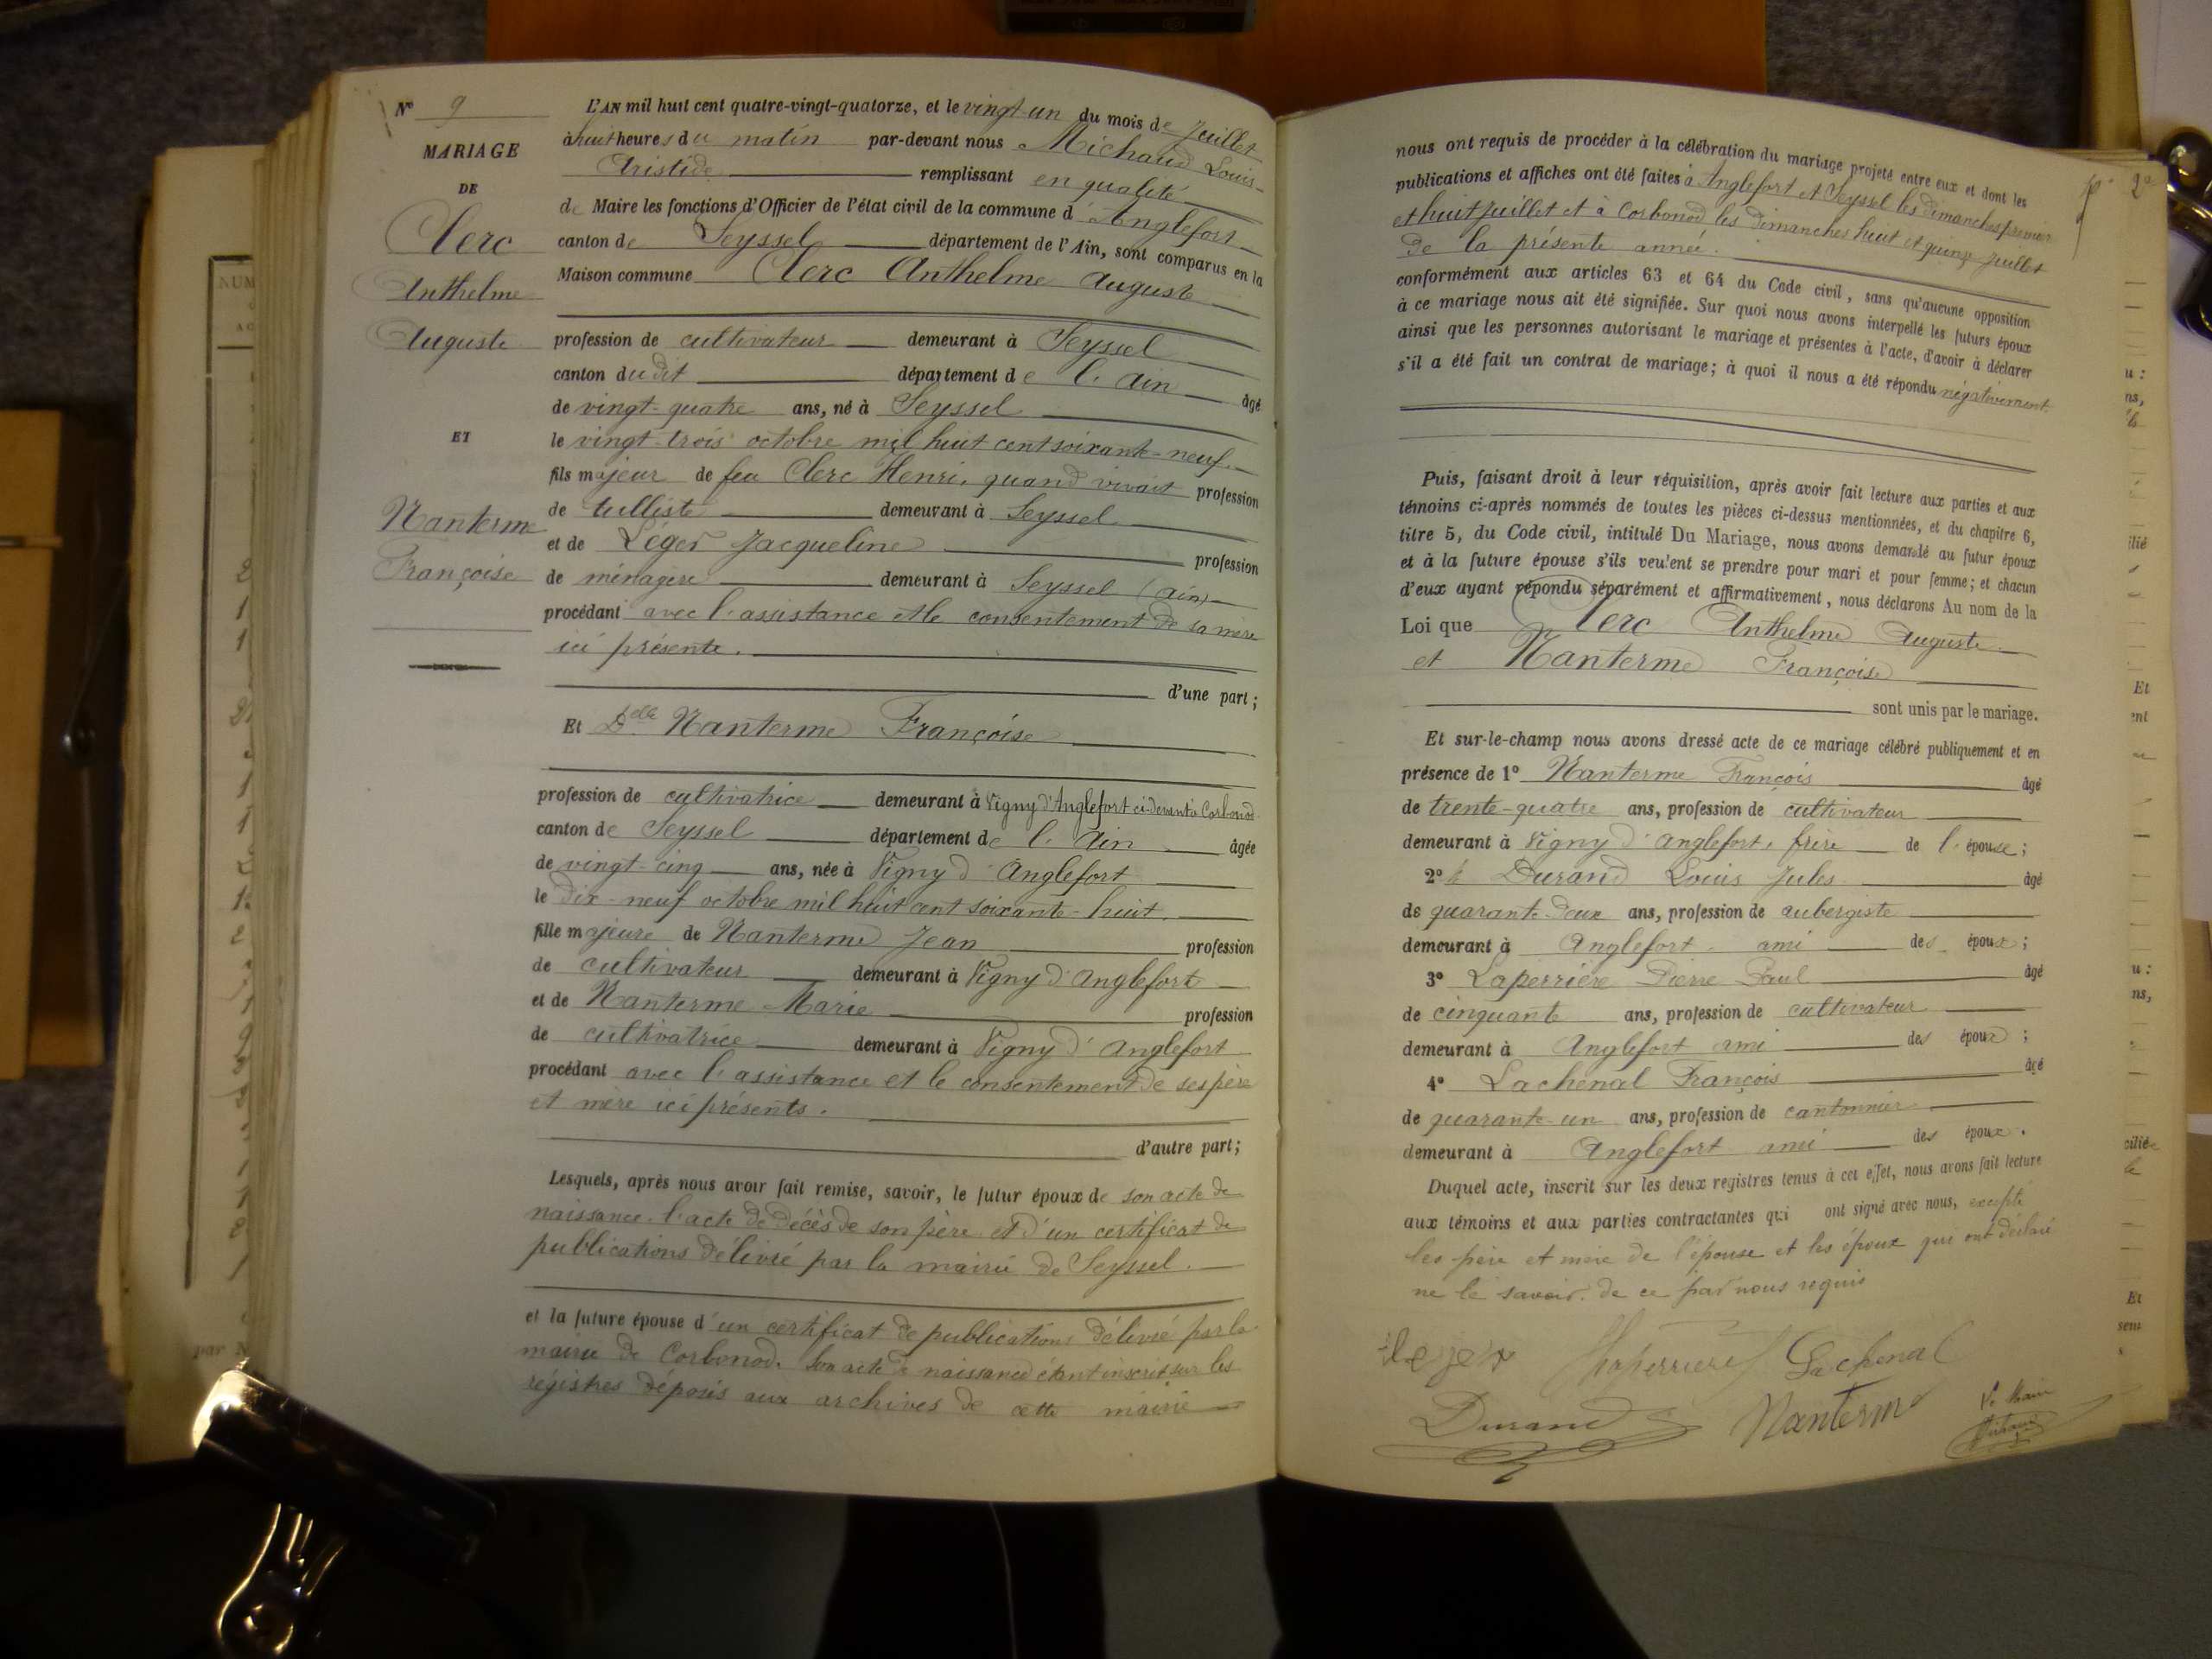 N° 9
MARIAGE
DE
Clerc
Anthelme
Auguste
ET
Nanterme
Françoise
L'AN mil huit cent quatre-vingt-quatorze, et le vingt-un du mois de Juillet
à huit heures du matin par-devant nous Michaud Louis-
Aristide remplissant en qualité
de Maire les fonctions d'Officier de l'état civil de la commune d'Anglefort
canton de Seyssel département de l'Ain, sont comparus en la
Maison commune Clerc Anthelme Auguste
profession de cultivateur demeurant à Seyssel
canton dudit département de l'Ain âgé
de vingt-quatre ans, né à Seyssel
le vingt-trois octobre mil huit cent soixante-neuf.
fils majeur de feu Clerc Henri, quand vivait profession
de tulliste demeurant à Seyssel
et de Léger Jacqueline profession
de ménagère demeurant à Seyssel (Ain)
procédant avec l'assistance et le consentement de sa mère
ici présente.
d'une part;
Et Delle Nanterme Françoise
profession de cultivatrice demeurant à Vigny d'Anglefort ci-devant à Corbonod
canton de Seyssel département de l'Ain âgée
de vingt-cinq ans, née à Vigny d'Anglefort
le dix-neuf octobre mil huit cent soixante-huit.
fille majeure de Nanterme Jean profession
de cultivateur demeurant à Vigny d'Anglefort
et de Nanterme Marie profession
de cultivatrice demeurant à Vigny d'Anglefort
procédant avec l'assistance et le consentement de ses père
et mère ici présents.
d'autre part;
Lesquels, après nous avoir fait remise, savoir, le futur époux de son acte de
naissance, l'acte de décès de son père et d'un certificat de
publications délivré par la mairie de Seyssel.
et la future épouse d'un certificat de publications délivré par la
mairie de Corbonod. Son acte de naissance étant inscrit sur les
régistres déposés aux archives de cette mairie
nous ont requis de procéder à la célébration du mariage projeté entre eux et dont les
publications et affiches ont été faites à Anglefort et Seyssel les dimanches premier
et huit juillet et à Corbonod les dimanches huit et quinze juillet
de la présente année.
conformément aux articles 63 et 64 du Code civil, sans qu'aucune opposition
à ce mariage nous ait été signifiée. Sur quoi nous avons interpellé les futurs époux
ainsi que les personnes autorisant le mariage et présentes à l'acte, d'avoir à déclarer
s'il a été fait un contrat de mariage; à quoi il nous a été répondu négativement.
Puis, faisant droit à leur réquisition, après avoir fait lecture aux parties et aux
témoins ci-après nommés de toutes les pièces ci-dessus mentionnées, et du chapitre 6,
titre 5, du Code civil, intitulé Du Mariage, nous avons demandé au futur époux
et à la future épouse s'ils veulent se prendre pour mari et pour femme; et chacun
d'eux ayant répondu séparément et affirmativement, nous déclarons Au nom de la
Loi que Clerc Anthelme Auguste
et Nanterme Françoise
sont unis par le mariage.
Et sur-le-champ nous avons dressé acte de ce mariage célébré publiquement et en
présence de 1° Nanterme François âgé
de trente-quatre ans, profession de cultivateur
demeurant à Vigny d'Anglefort, frère de l'épouse;
2° Durand Louis Jules âgé
de quarante-deux ans, profession de aubergiste
demeurant à Anglefort ami des époux;
3° Laperrière Pierre Paul âgé
de cinquante ans, profession de cultivateur
demeurant à Anglefort ami des époux;
4° Lachenal François âgé
de quarante-un ans, profession de cantonnier
demeurant à Anglefort ami des époux.
Duquel acte, inscrit sur les deux registres tenus à cet effet, nous avons fait lecture
aux témoins et aux parties contractantes qui ont signé avec nous, excepté
les père et mère de l'épouse et les époux qui ont déclaré
ne le savoir, de ce par nous requis
Laperriere Lachenal
Durand Nanterme